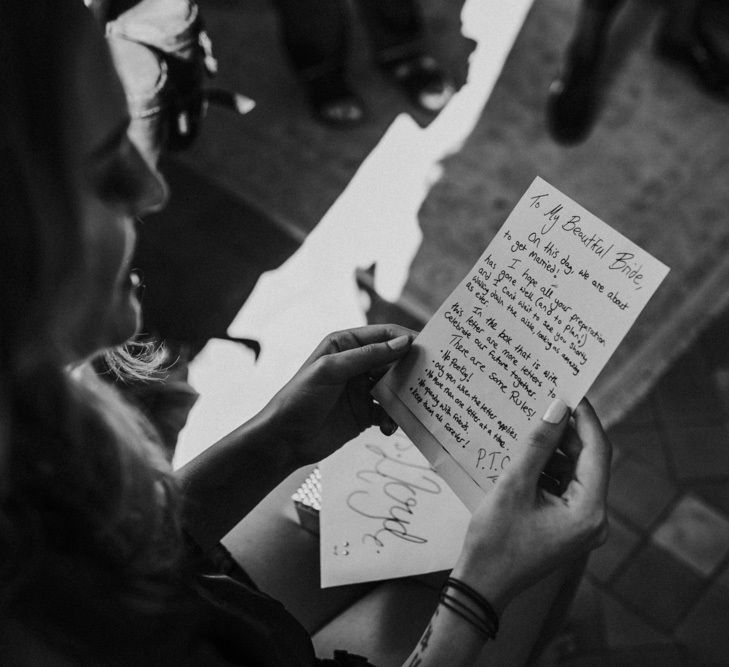 To My Beautiful Bride,
On this day, we are about
to get married!
I hope all your preparation
has gone well (and to plan!)
and I can't wait to see you shortly
walking down the aisle, looking as amazing
as ever.
In the box that is with
this letter are more letters to
celebrate our future together.
There are some Rules!
• No Peeking!
• only open when the letter applies.
• No more than one letter at a time.
• No opening with friends.
• keep them all forever!
P.T.O
Lloyd